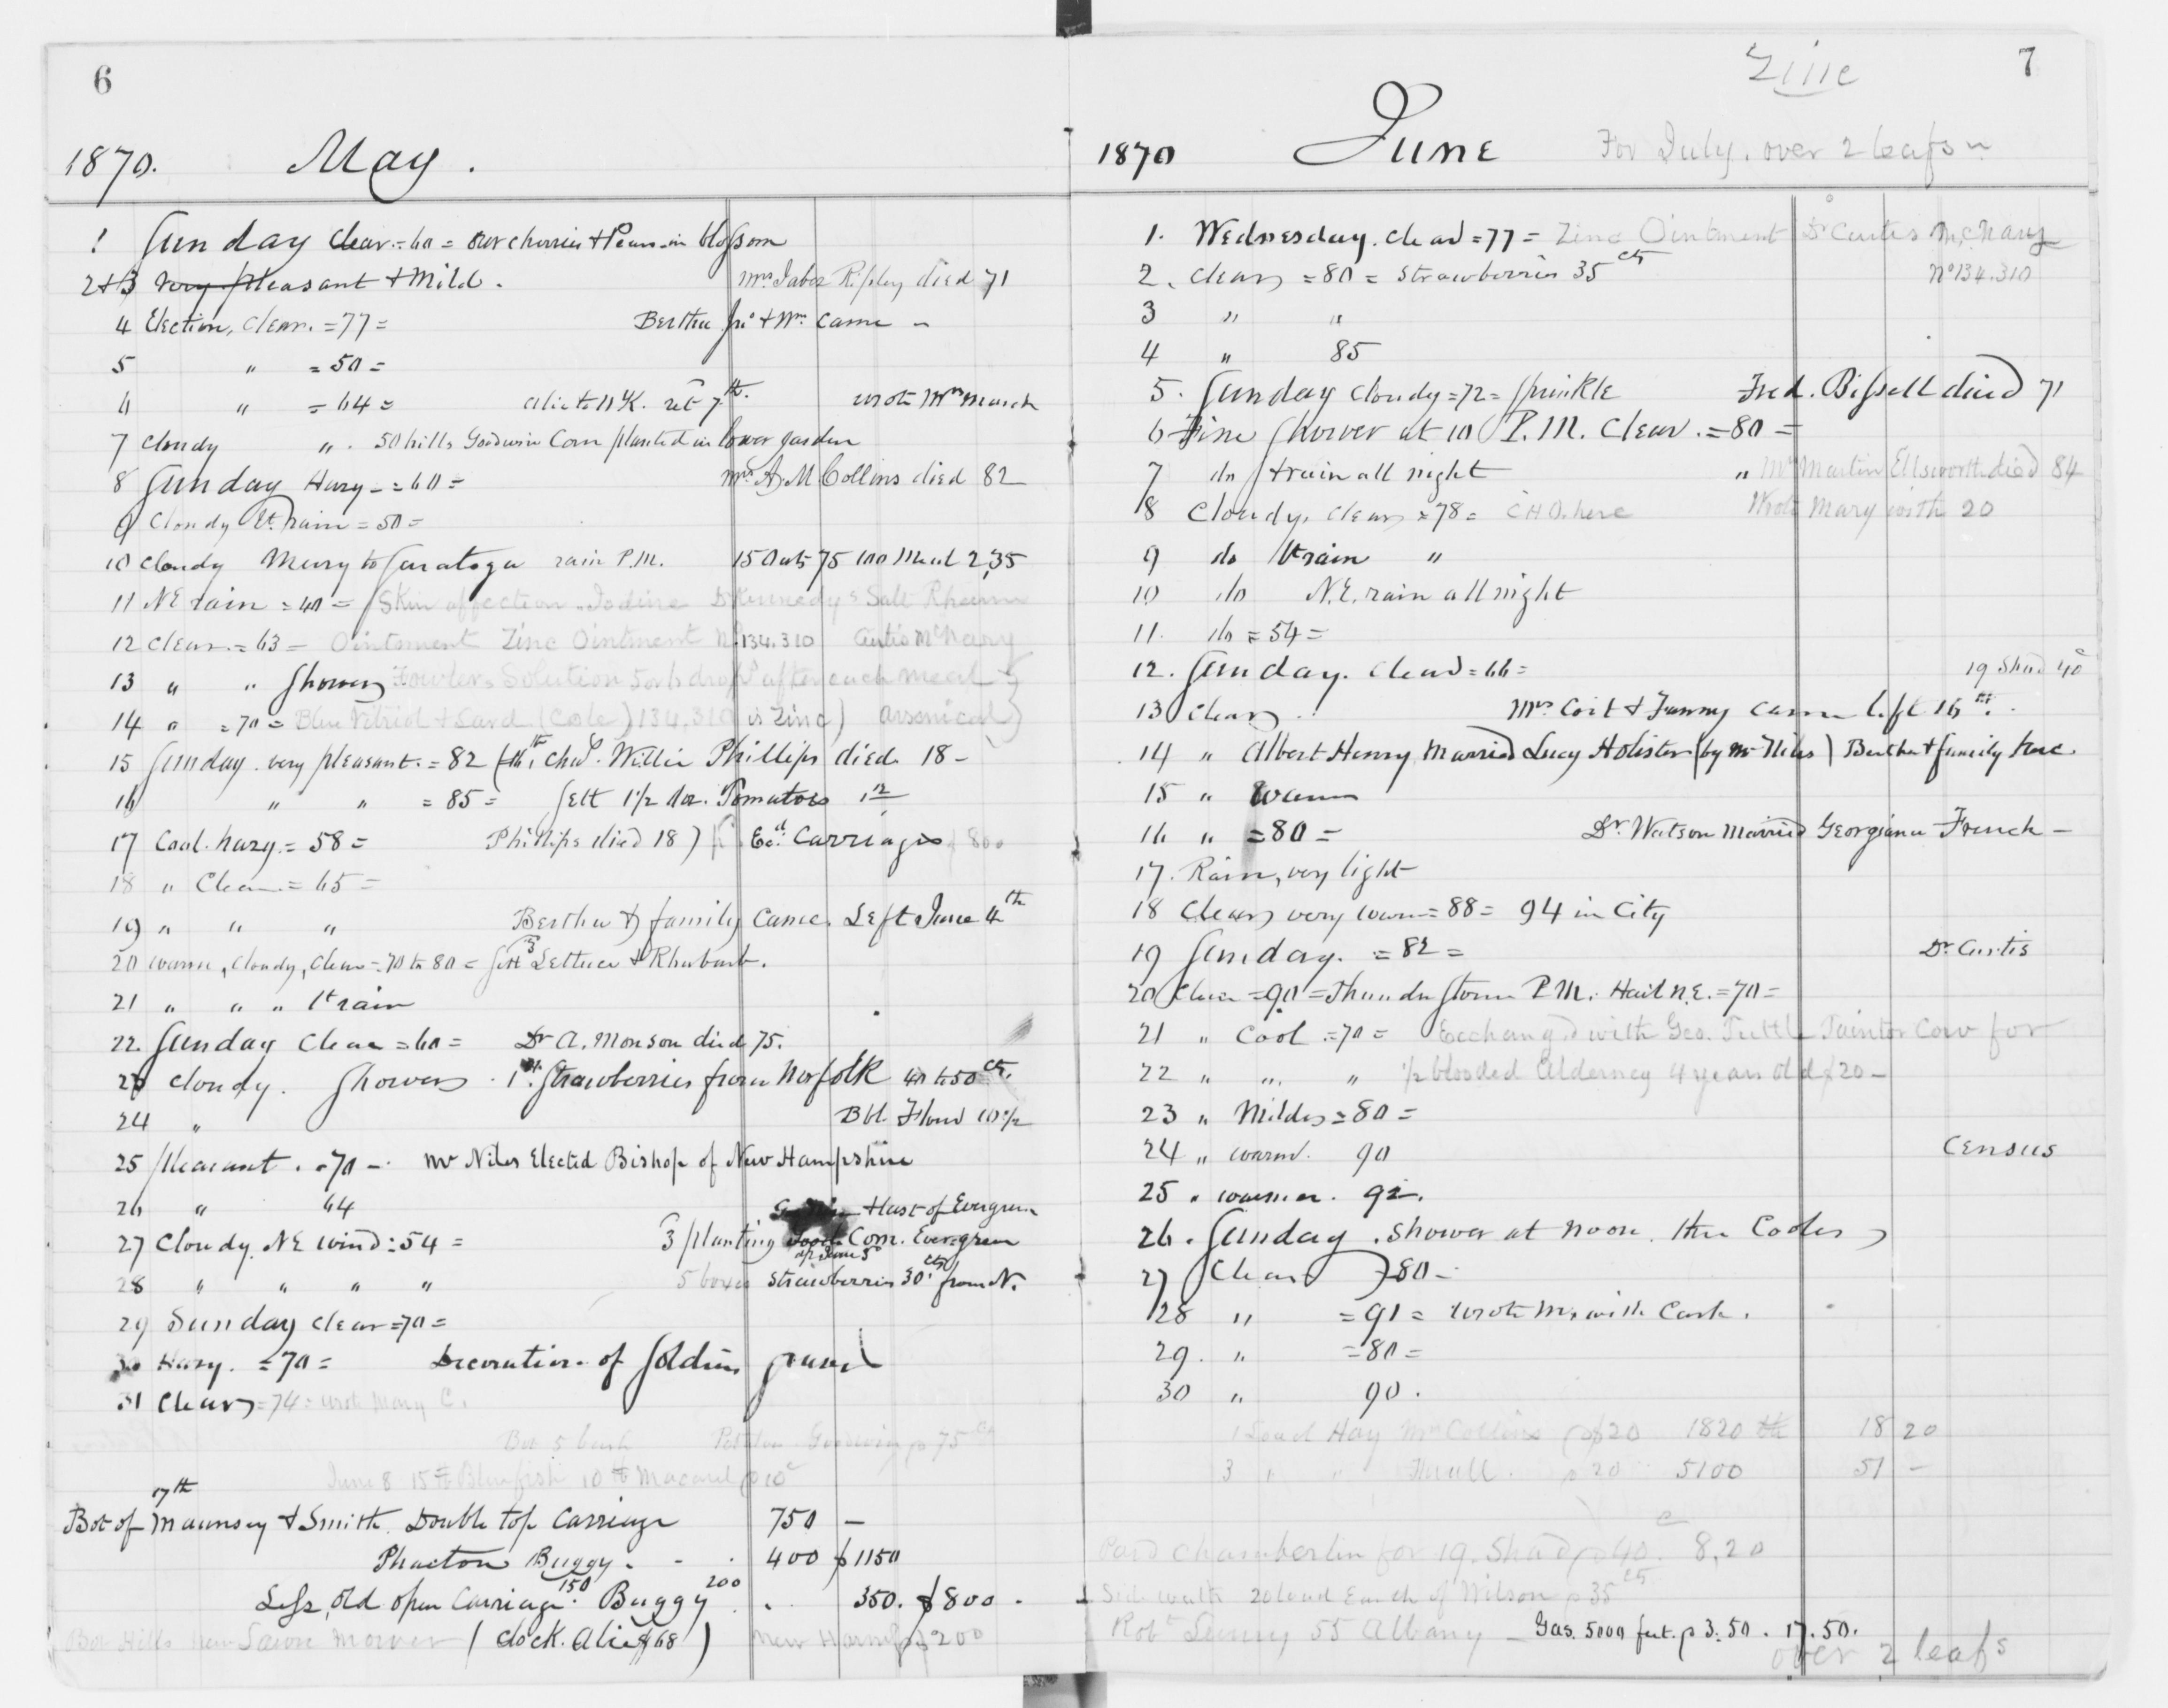 6
1870. May.
1 Sunday Clear = 60 = Our cherries & Pears in blossom
2&3 Very pleasant & Mild. Mrs Jabez Ripley died 71
4 Election, Clear. = 77 = Bertha Jno & Wm came
5 " = 50 =
6 " = 64 = Alice to N.Y. ret 7th. wrote Mrs March
7 Cloudy ". 50 hills Goodwin Corn planted in lower garden
8 Sunday Hazy = 60 = Mrs A M Collins died 82
9 Cloudy Lt. rain = 50 =
10 Cloudy Mary to Saratoga rain P.M. 15 Oats 75 100 Meal 2,35
11 NE rain = 40 = Skin affection Iodine Dr Kennedys Salt Rheum
12 Clear = 63 = Ointment Zinc Ointment No. 134.310 Curtis McNary
13 " " Shower Fowlers Solution 5 or 6 drops after each meal
14 " = 70 = Blue Vitriol & Lard (Cole) 134,310 is Zinc) Arsenical)
15 Sunday very pleasant. = 82 Willie Phillips died 18 -
16 " " = 85 = Sett 1 1/2 doz. Tomatoes
17 Cool. hazy = 58 = Phillips died 18) Ecd. Carriages $800
18 " Clear = 65 =
19 " " " Bertha & family Came. Left June 4th
20 warm, Cloudy, Clear = 70 to 80 = Sett 3 Lettuce & Rhubarb.
21 " " " Lt rain
22. Sunday Clear = 60 = Dr A. Monson died 75.
23 Cloudy. Showers 1st. Strawberries from Norfolk 40 to 50 cts.
24 " Bbl Flour 10 1/2
25 Pleasant. = 70 - Mr Niles Elected Bishop of New Hampshire
26 " 64 & last of Evergreen
27 Cloudy. NE wind = 54 = 3 planting Corn. Evergreen
28 " " " " 5 boxes Strawberries 30 cts from N.
29 Sunday Clear = 70 =
30 Hazy. = 70 = Decoration of Soldiers graves
31 Clear = 74 = wrote Mary C.
Bot 5 bush Goodwin p 75 cts
June 8 15 # Bluefish 10 # Macarel p 10c
17th
Bot of Maunsey & Smith Double top Carriage 750 —
Phaeton Buggy. - . 400 $1150
Less, Old open Carriage 150 Buggy 200 . 350. $800 -
Bot Hills new Lawn Mower (Clock. Alice $68) New Harness $200
7
Zinc
1870 June For July, over 2 leafs
1. Wednesday. Clear = 77 = Zinc Ointment Dr Curtis McNary
2. Clear = 80 = Strawberries 35 cts No 134.310
3 " "
4 " 85
5. Sunday Cloudy = 72 = Sprinkle Fred. Bissell died 71
6 Fine Shower at 10 P.M. Clear. = 80 =
7 do & rain all night " Mr Martin Ellsworth died 84
8 Cloudy, Clear = 78 = C H O. here Wrote Mary with 20
9 do Lt rain "
10 do N.E. rain all night
11. do = 54 =
12. Sunday. Clear = 66 = 19 Shad 40c
13 Clear Mrs Coit & Fanny came left 16th.
14 " Albert Henry Married Lucy Holister (by Mr Niles) Bertha & family here.
15 " Warm
16 " = 80 = Dr. Watson Married Georgiana French -
17. Rain, very light
18 Clear very warm = 88 = 94 in City
19 Sunday. = 82 = Dr. Curtis
20 Clear = 90 = Thunder Storm P.M. Hail N.E. = 70 =
21 " Cool = 70 = Exchanged with Geo. Tuttle Taintor Cow for
22 " " " 1/2 blooded Alderney 4 years old $20 -
23 " Milder = 80 =
24 " warm. 90 Census
25 " warmer. 92.
26. Sunday. Shower at noon. then Cooler
27 Clear 80 -
28 " = 91 = wrote M, with Cash.
29. " = 80 =
30 " 90.
1 Load Hay Mr Collins p $20 1820 lb 18 20
3 " " p 20 5100 51 -
Paid Chamberlin for 19. Shad p 40c. 8,20
Side walk 20 load Earth of Wilson p 35 cts
Robt 55 Albany - Gas. 5000 feet. p 3.50. 17.50.
over 2 leafs